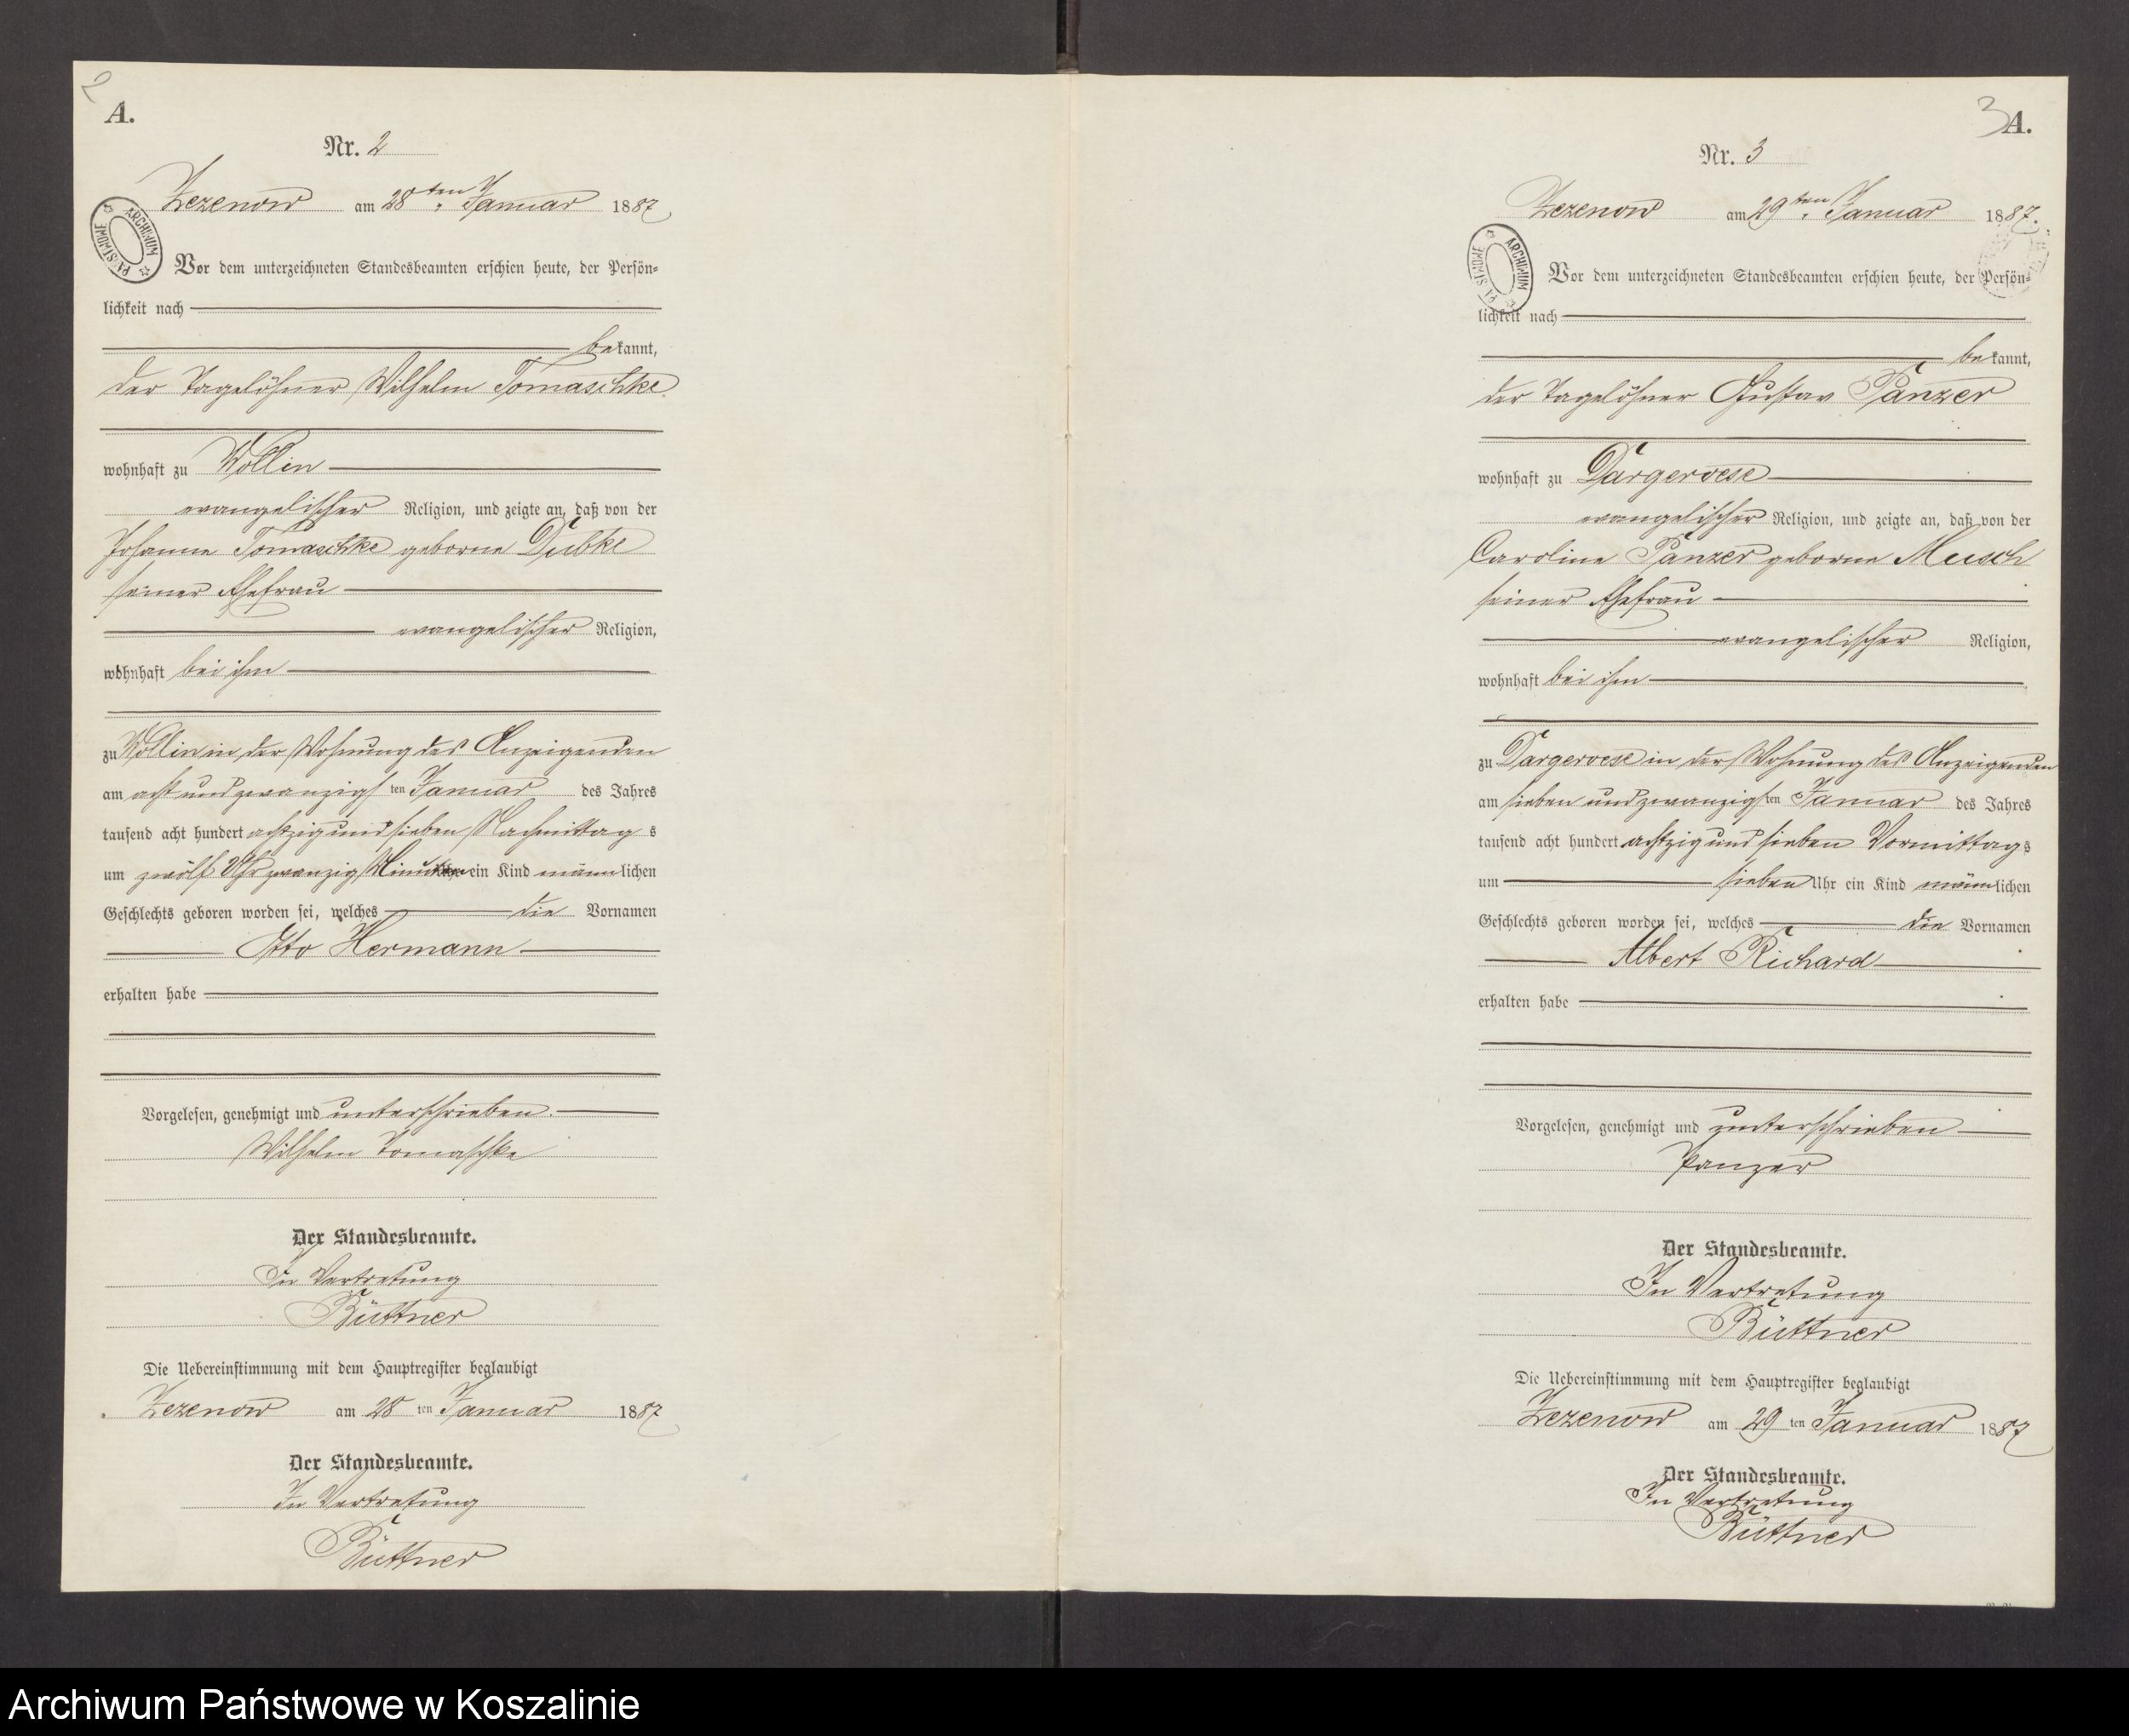 2
A.
Nr. 2
Zezenow am 28ten Januar 1887
ARCHIWUM PAŃSTWOWE
Vor dem unterzeichneten Standesbeamten erschien heute, der Persön-
lichkeit nach
bekannt,
der Tagelöhner Wilhelm Tomaschke
wohnhaft zu Wollin
evangelischer Religion, und zeigte an, daß von der
Johanne Tomaschke geborne Dubke
seiner Ehefrau
evangelischer Religion,
wohnhaft bei ihm
zu Wollin in der Wohnung des Anzeigenden
am acht und zwanzigsten Januar des Jahres
tausend acht hundert achtzig und sieben Nachmittags
um zwölf Uhr zwanzig Minuten ein Kind männlichen
Geschlechts geboren worden sei, welches die Vornamen
Otto Hermann
erhalten habe
Vorgelesen, genehmigt und unterschrieben.
Wilhelm Tomaschke
Der Standesbeamte.
In Vertretung
Büttner
Die Uebereinstimmung mit dem Hauptregister beglaubigt
Zezenow am 28 ten Januar 1887
Der Standesbeamte.
In Vertretung
Büttner
3
A.
Nr. 3
Zezenow am 29ten Januar 1887.
ARCHIWUM PAŃSTWOWE
Vor dem unterzeichneten Standesbeamten erschien heute, der Persön-
lichkeit nach
bekannt,
der Tagelöhner Gustav Panzer
wohnhaft zu Dargeroese
evangelischer Religion, und zeigte an, daß von der
Caroline Panzer geborne Musch
seiner Ehefrau
evangelischer Religion,
wohnhaft bei ihm
zu Dargeroese in der Wohnung des Anzeigenden
am sieben und zwanzigsten Januar des Jahres
tausend acht hundert achtzig und sieben Vormittags
um sieben Uhr ein Kind männlichen
Geschlechts geboren worden sei, welches die Vornamen
Albert Richard
erhalten habe
Vorgelesen, genehmigt und unterschrieben
Panzer
Der Standesbeamte.
In Vertretung
Büttner
Die Uebereinstimmung mit dem Hauptregister beglaubigt
Zezenow am 29 ten Januar 1887
Der Standesbeamte.
In Vertretung
Büttner
Archiwum Państwowe w Koszalinie